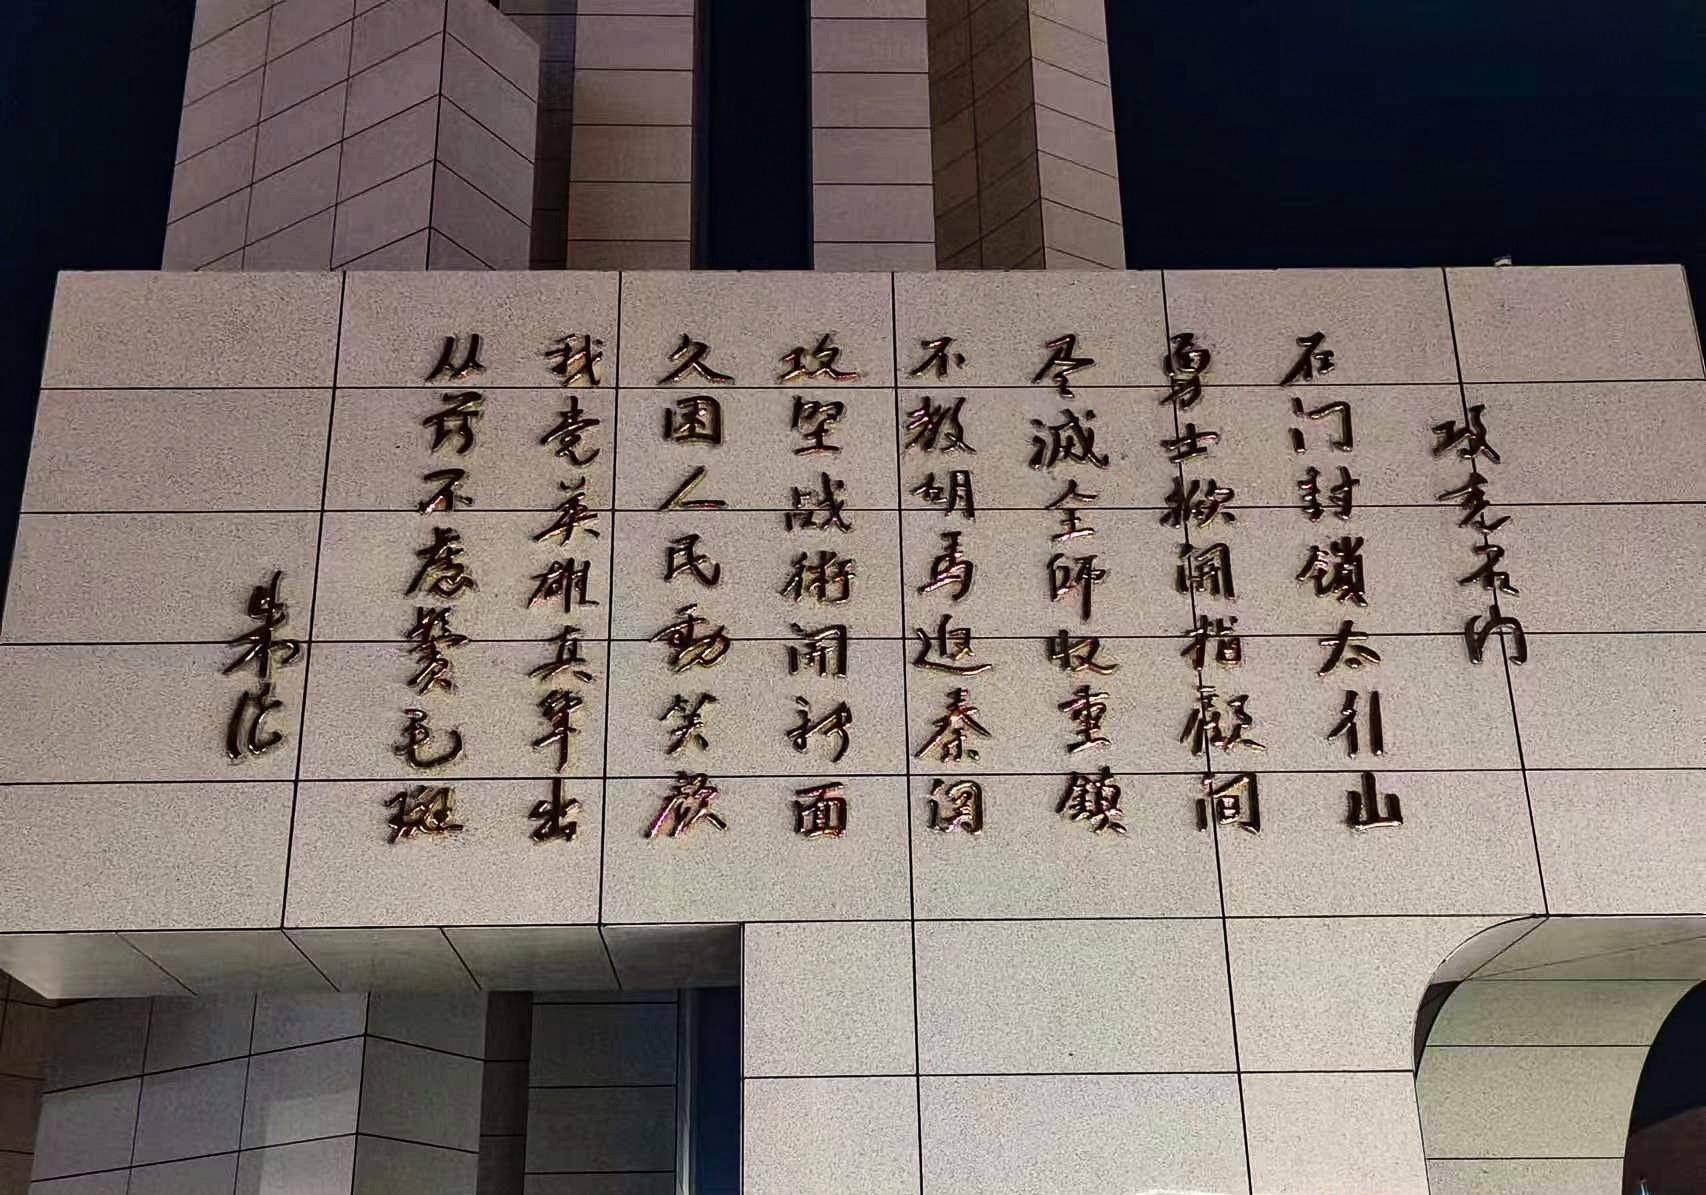 攻克石门
石门封鎖太行山
勇士掀開指顧间
尽滅全師收重鎮
不教胡马返秦关
攻坚战術開新面
久困人民動笑颜
我党英雄真辈出
从兹不虑鬓毛斑
朱德